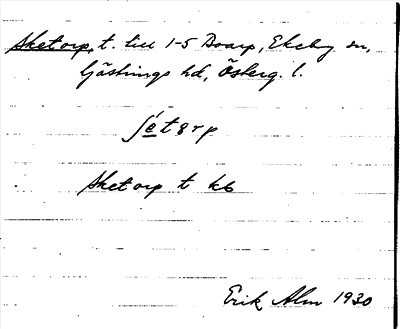 Sketorp, t. till 1-5 Boarp, Ekeby sn,
Göstrings hd, Österg. l.
ʃétərp
Sketorp t kb
Erik Alm 1930